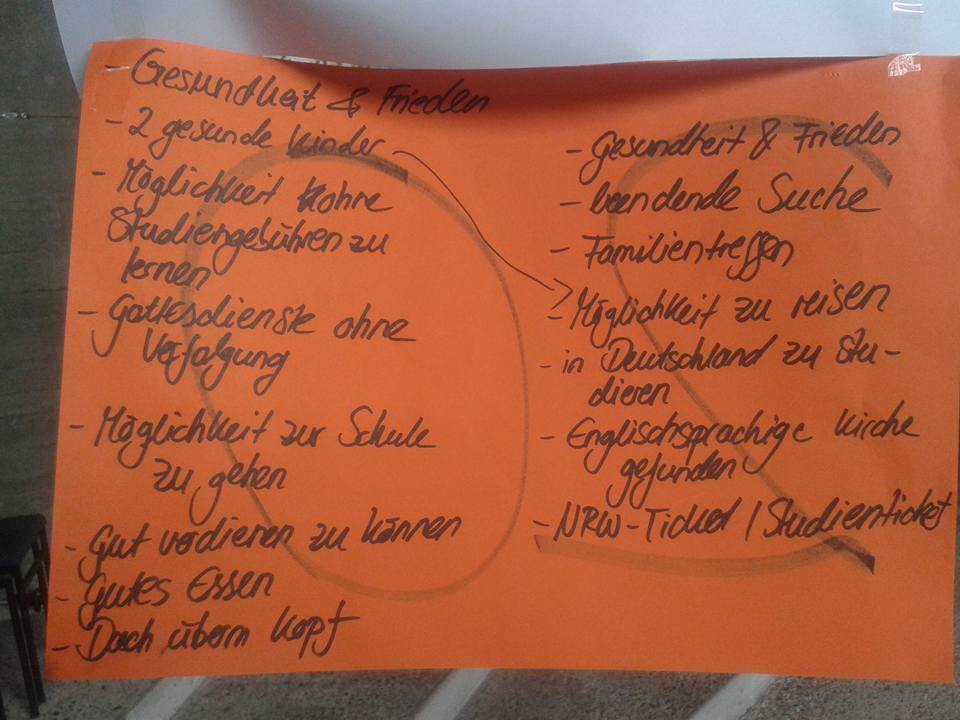 - Gesundheit & Frieden
- 2 gesunde Kinder
- Möglichkeit ohne
Studiengebühren zu
lernen
- Gottesdienste ohne
Verfolgung
- Möglichkeit zur Schule
zu gehen
- Gut verdienen zu können
- Gutes Essen
- Dach überm Kopf
- Gesundheit & Frieden
- beendende Suche
- Familientreffen
- Möglichkeit zu reisen
- in Deutschland zu Stu-
dieren
- Englischsprachige Kirche
gefunden
- NRW-Ticket / Studienticket